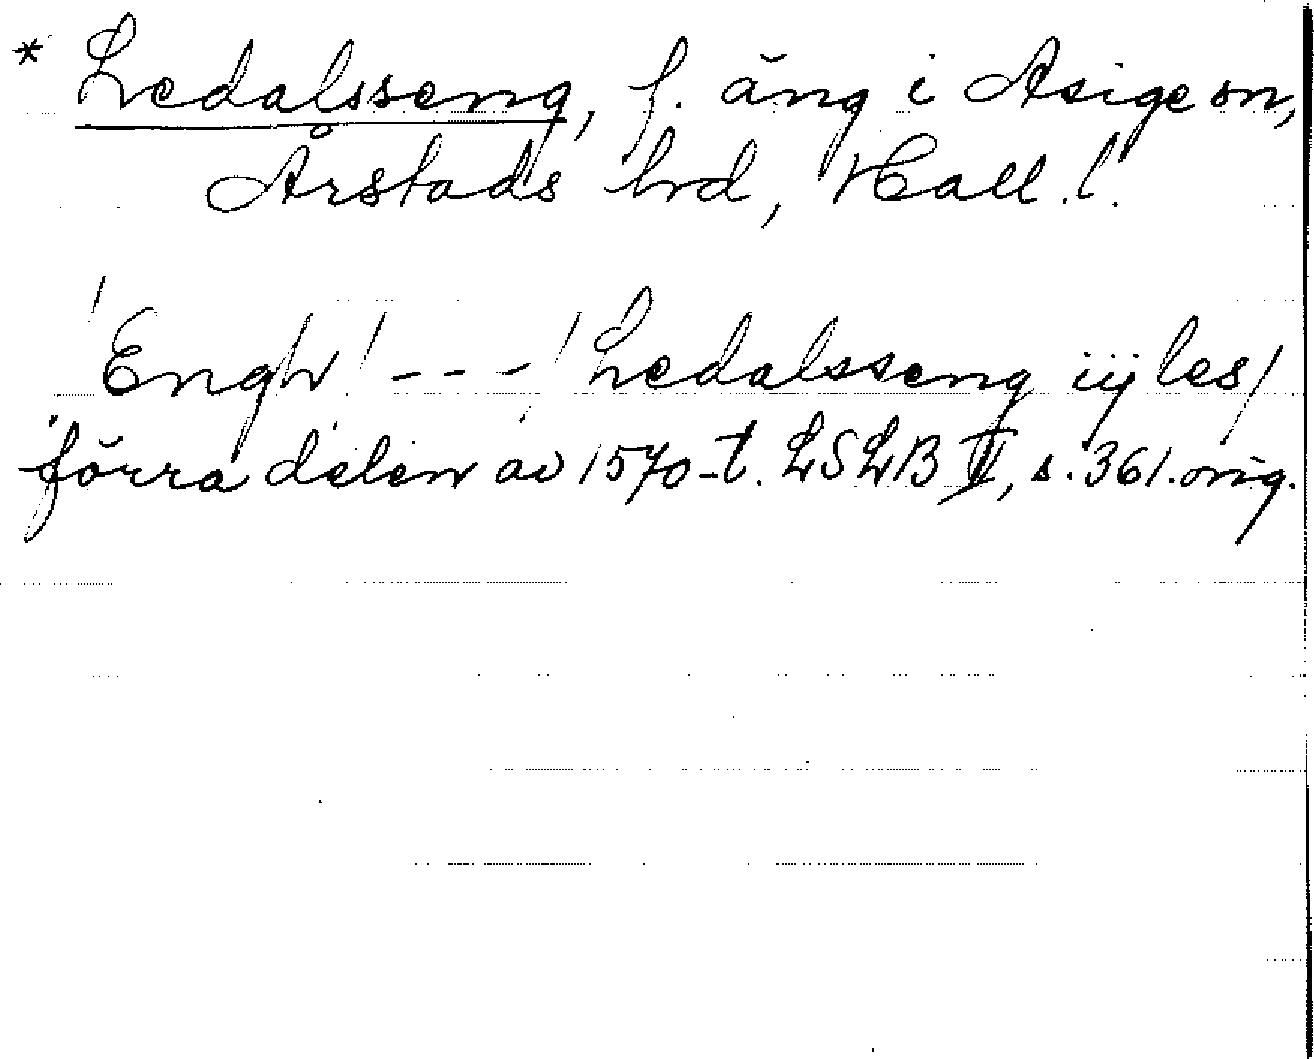 * Ledalsseng, f. äng i Asige sn,
Årstads hrd, Hall. l.
/Engh/ - - - / Ledalsseng iij les/
förra delen av 1570-t. LSLB II, s. 361. orig.